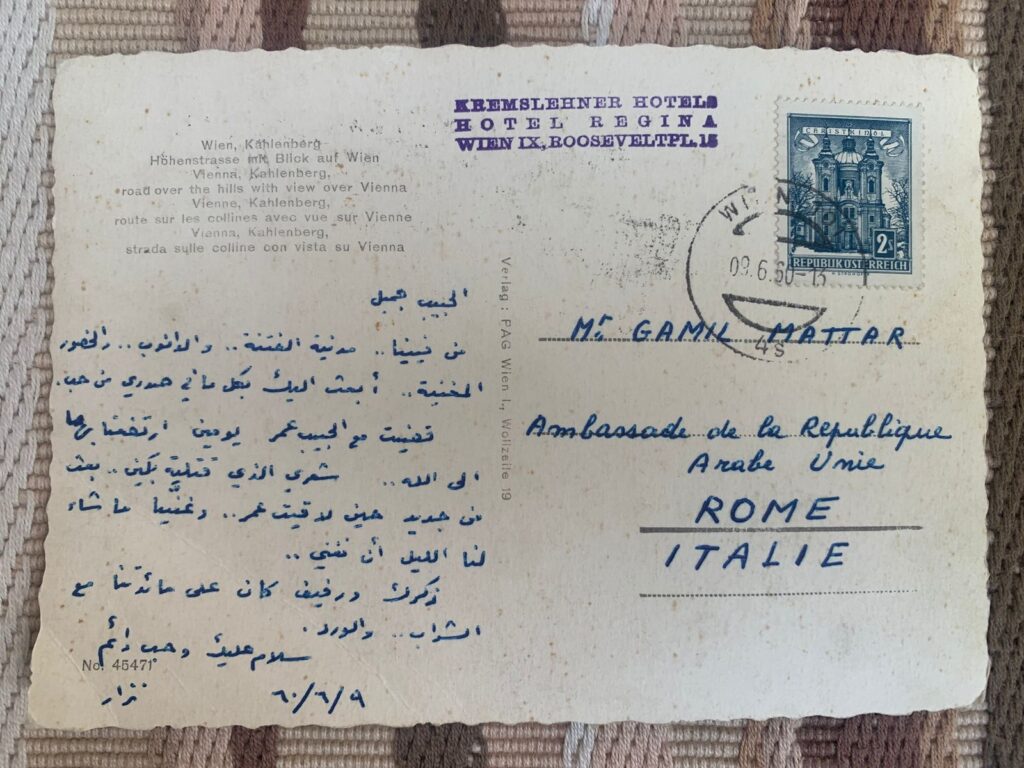 KREMSLEHNER HOTELS
HOTEL REGINA
WIEN IX, ROOSEVELTPL. 15
Wien, Kahlenberg
Höhenstrasse mit Blick auf Wien
Vienna, Kahlenberg,
road over the hills with view over Vienna
Vienne, Kahlenberg,
route sur les collines avec vue sur Vienne
Vienna, Kahlenberg,
strada sulle colline con vista su Vienna
CHRISTKINDL
2s
REPUBLIK ÖSTERREICH
09.6.60-13
4s
الحبيب جميل
من فيينا.. مدينة الفتنة.. والدانوب.. والخضور
المغنية.. أبعث اليك بكل ما في صدري من حب.
قضيت مع الحبيب عمر يومين ارتفعنا بهما
الى الله.. شعري الذي قتلته بكين.. بعث
من جديد حين لاقيت عمر.. وغنّينا ما شاء
لنا الليل أن نغني..
ذكرك ورفيف كان على مائدتنا مع
الشراب.. والورد.
سلام عليك وحب دائم
نزار
٦٠/٦/٩
No. 45471
Verlag: PAG Wien I., Wollzeile 19
Mr GAMIL MATTAR
Ambassade de la Republique
Arabe Unie
ROME
ITALIE